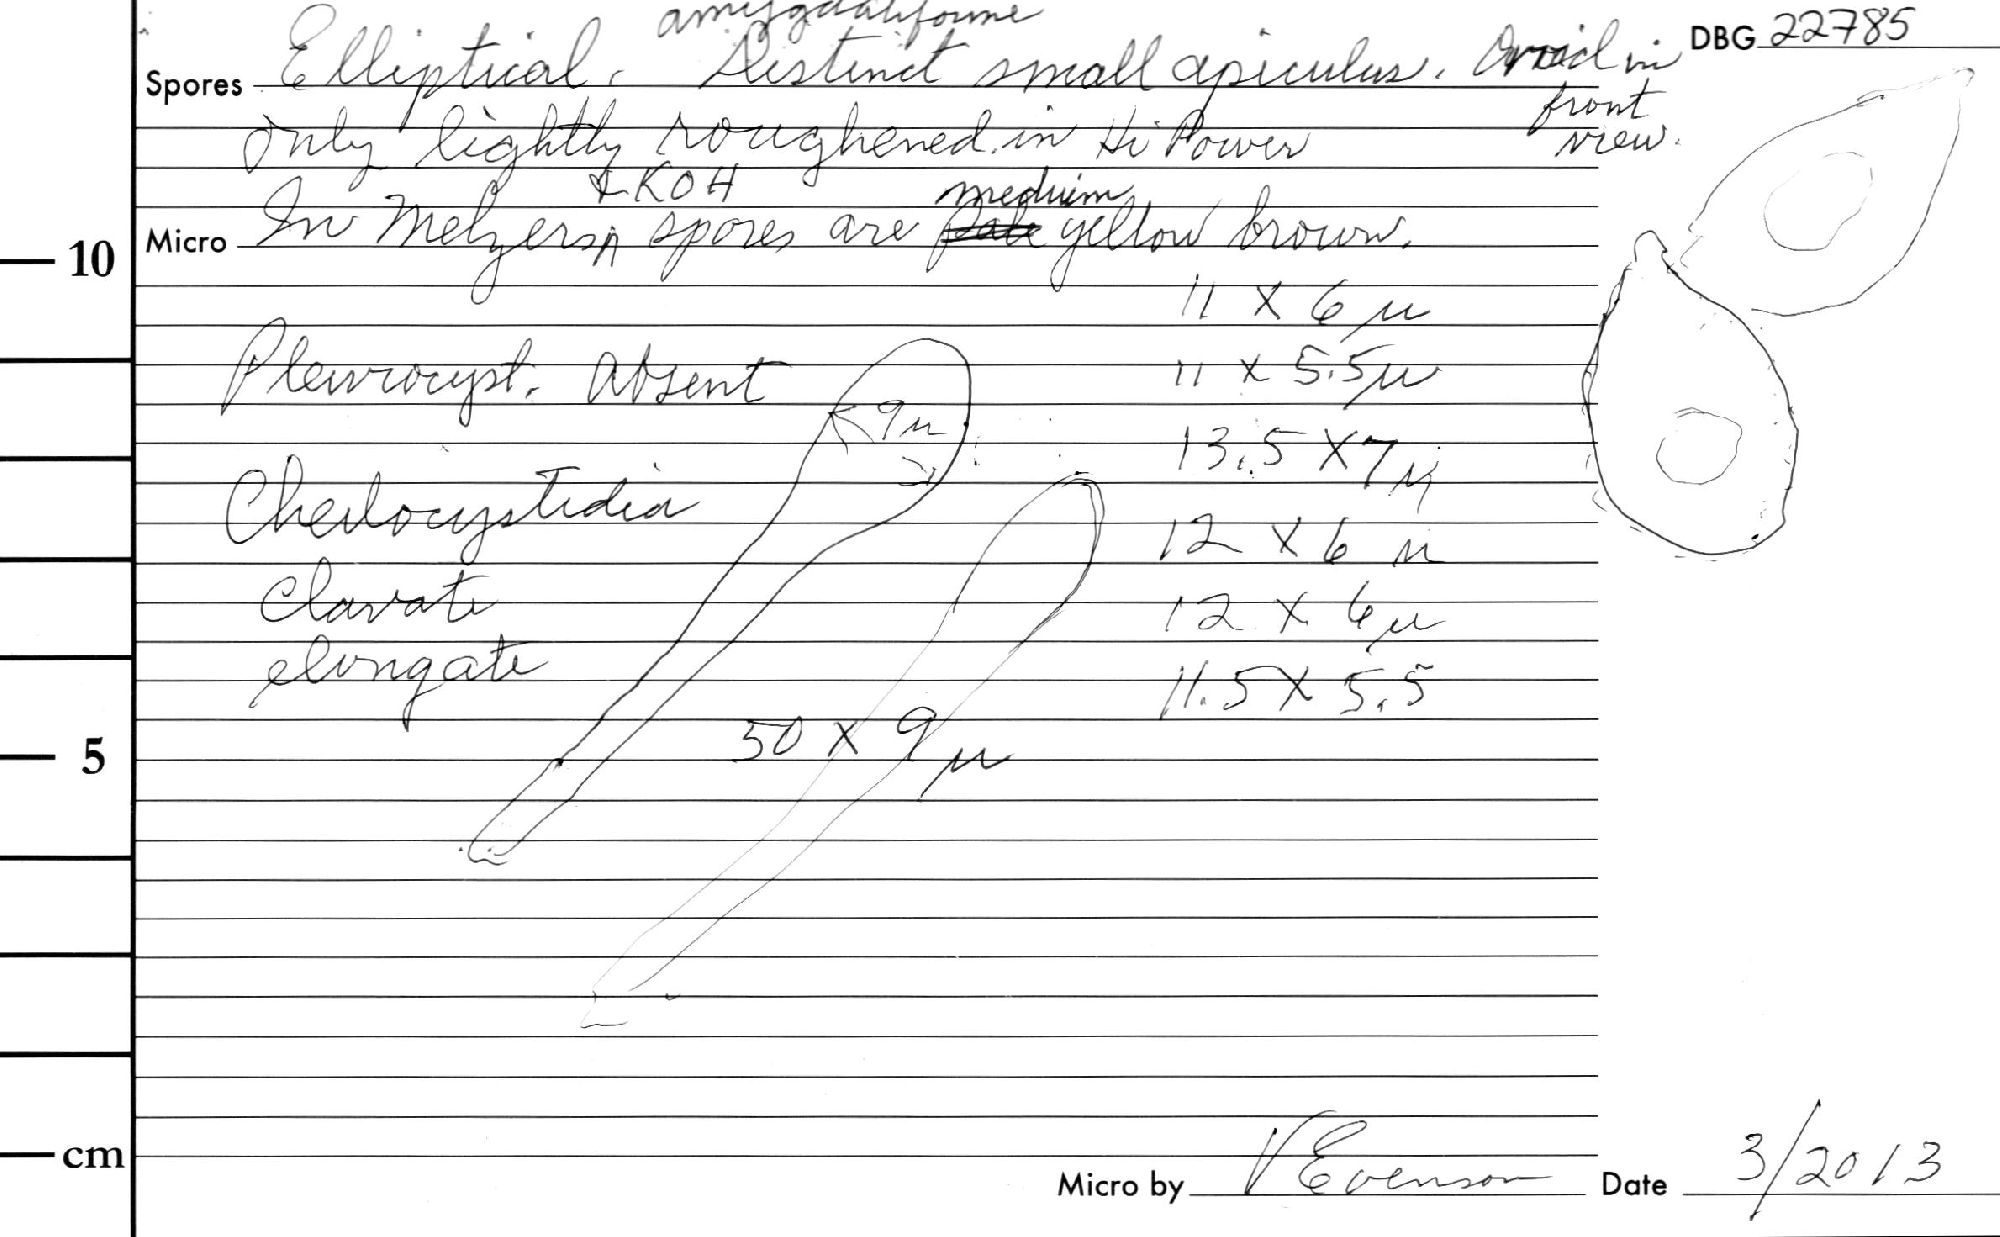 amygdaliforme
DBG 22785
Spores Elliptical. Distinct small apiculus. Ovoid in front view.
only lightly roughened in Hi Power
& KOH medium
Micro In Melzers ^ spores are pale yellow brown.
10
11 X 6 μ
Pleurocyst. Absent
11 x 5.5 μ
9 μ
13.5 X 7 μ
Cheilocystidia
12 X 6 μ
clavate
12 X 6 μ
elongate
11.5 X 5.5
50 X 9 μ
5
cm
Micro by V Evenson Date 3/2013